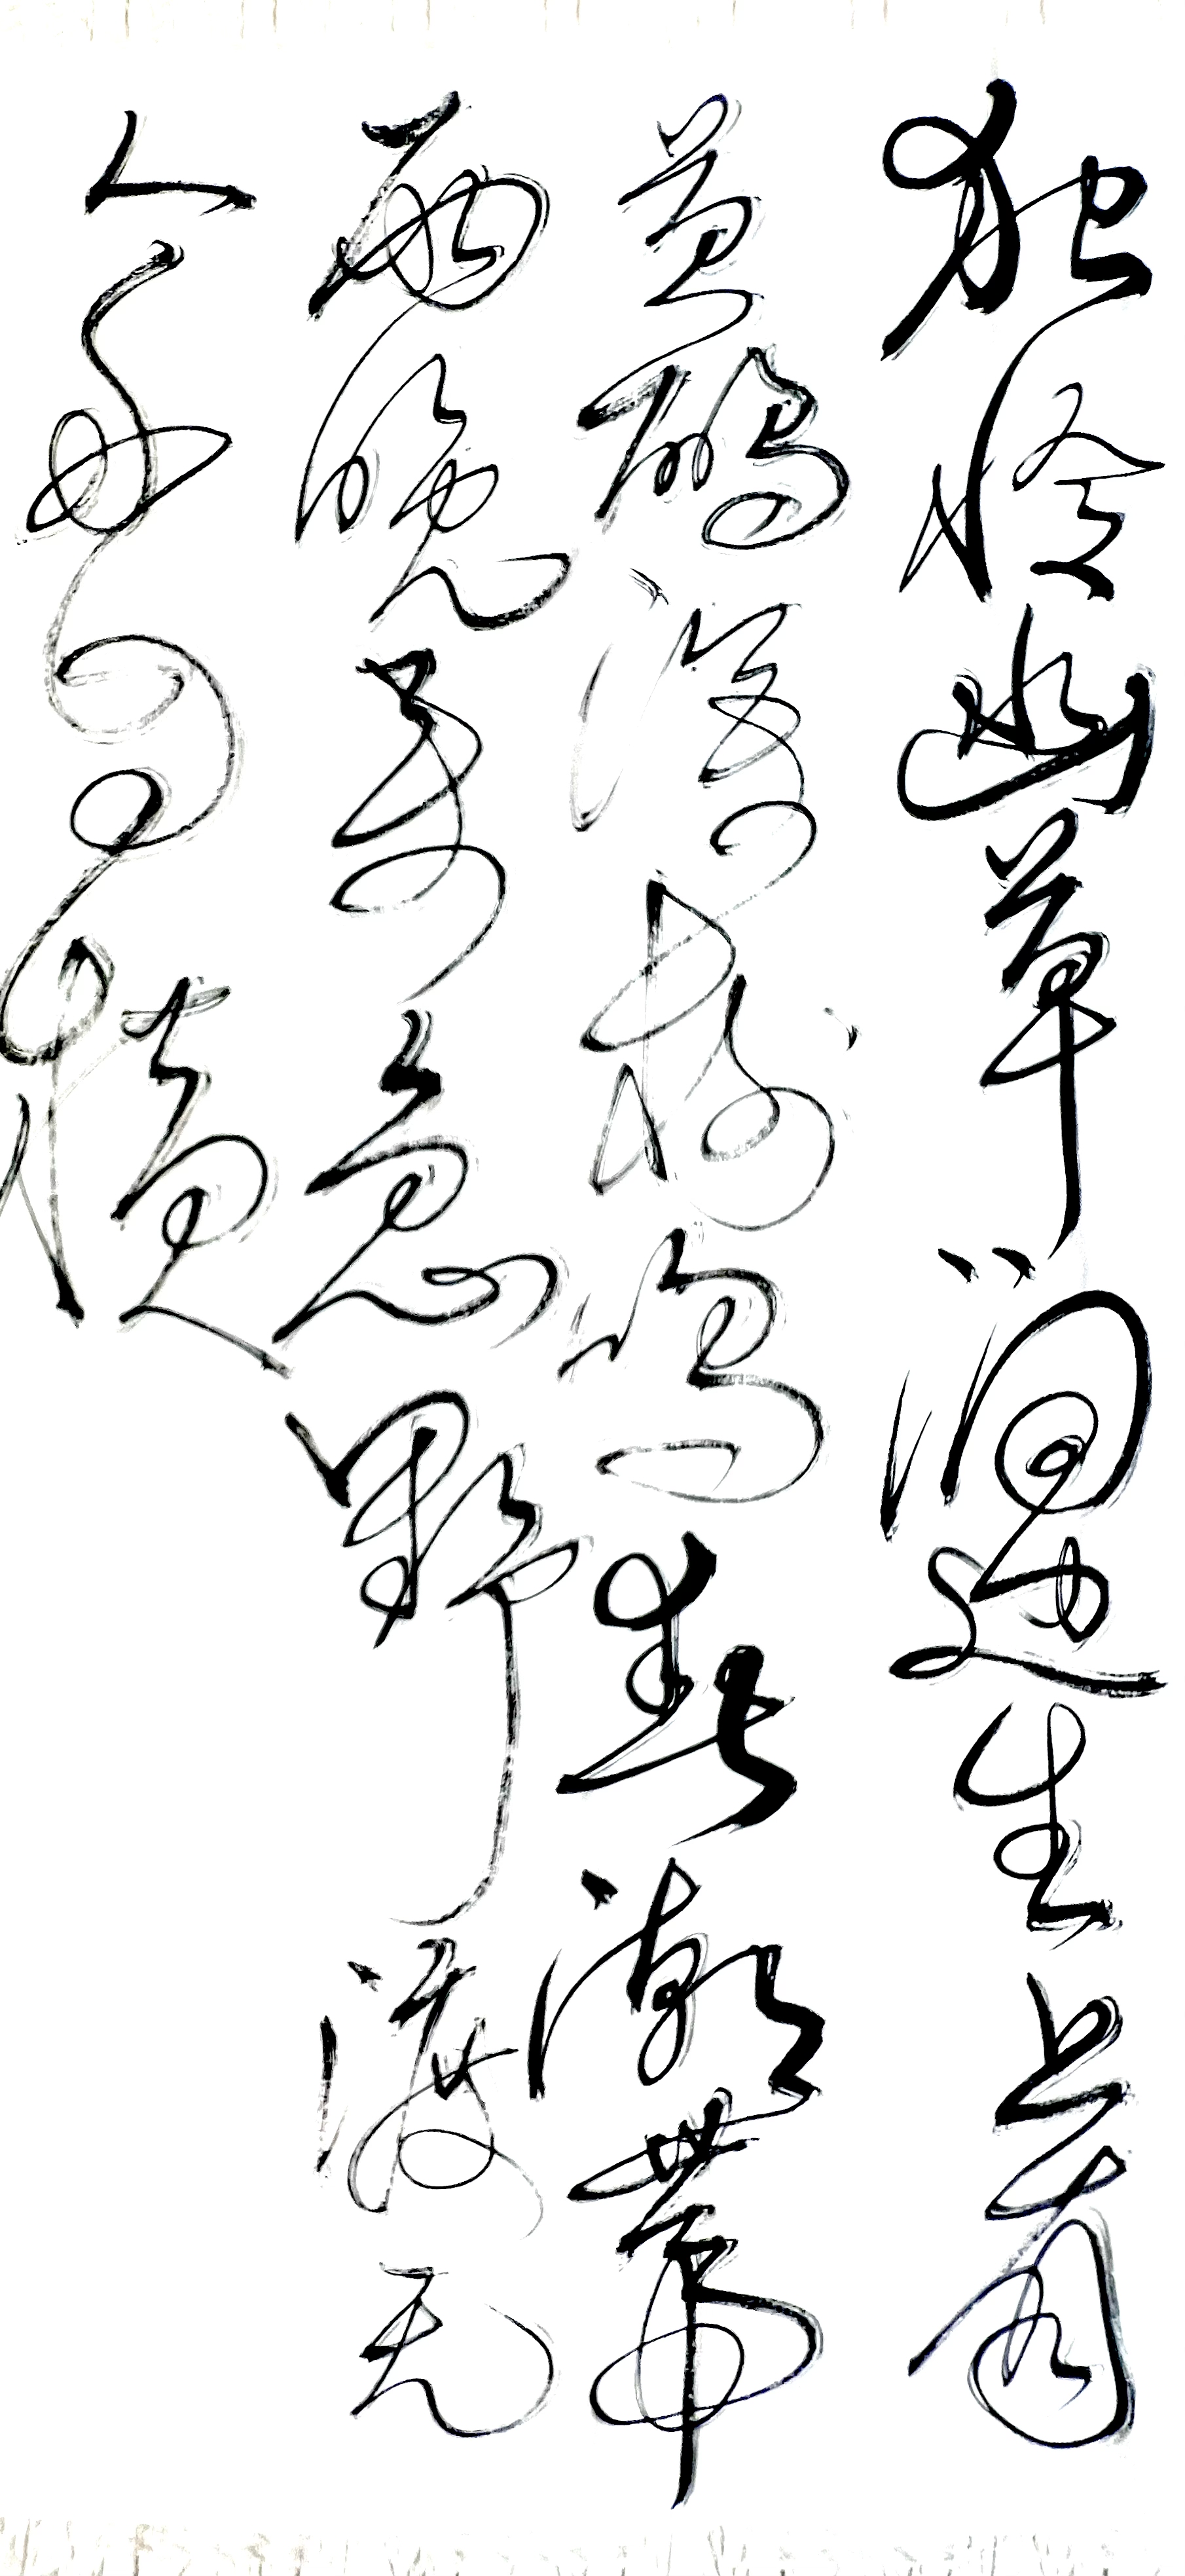 独怜幽草涧边生上有
黄鹂深树鸣春潮带
雨晚来急野渡无
人舟自横